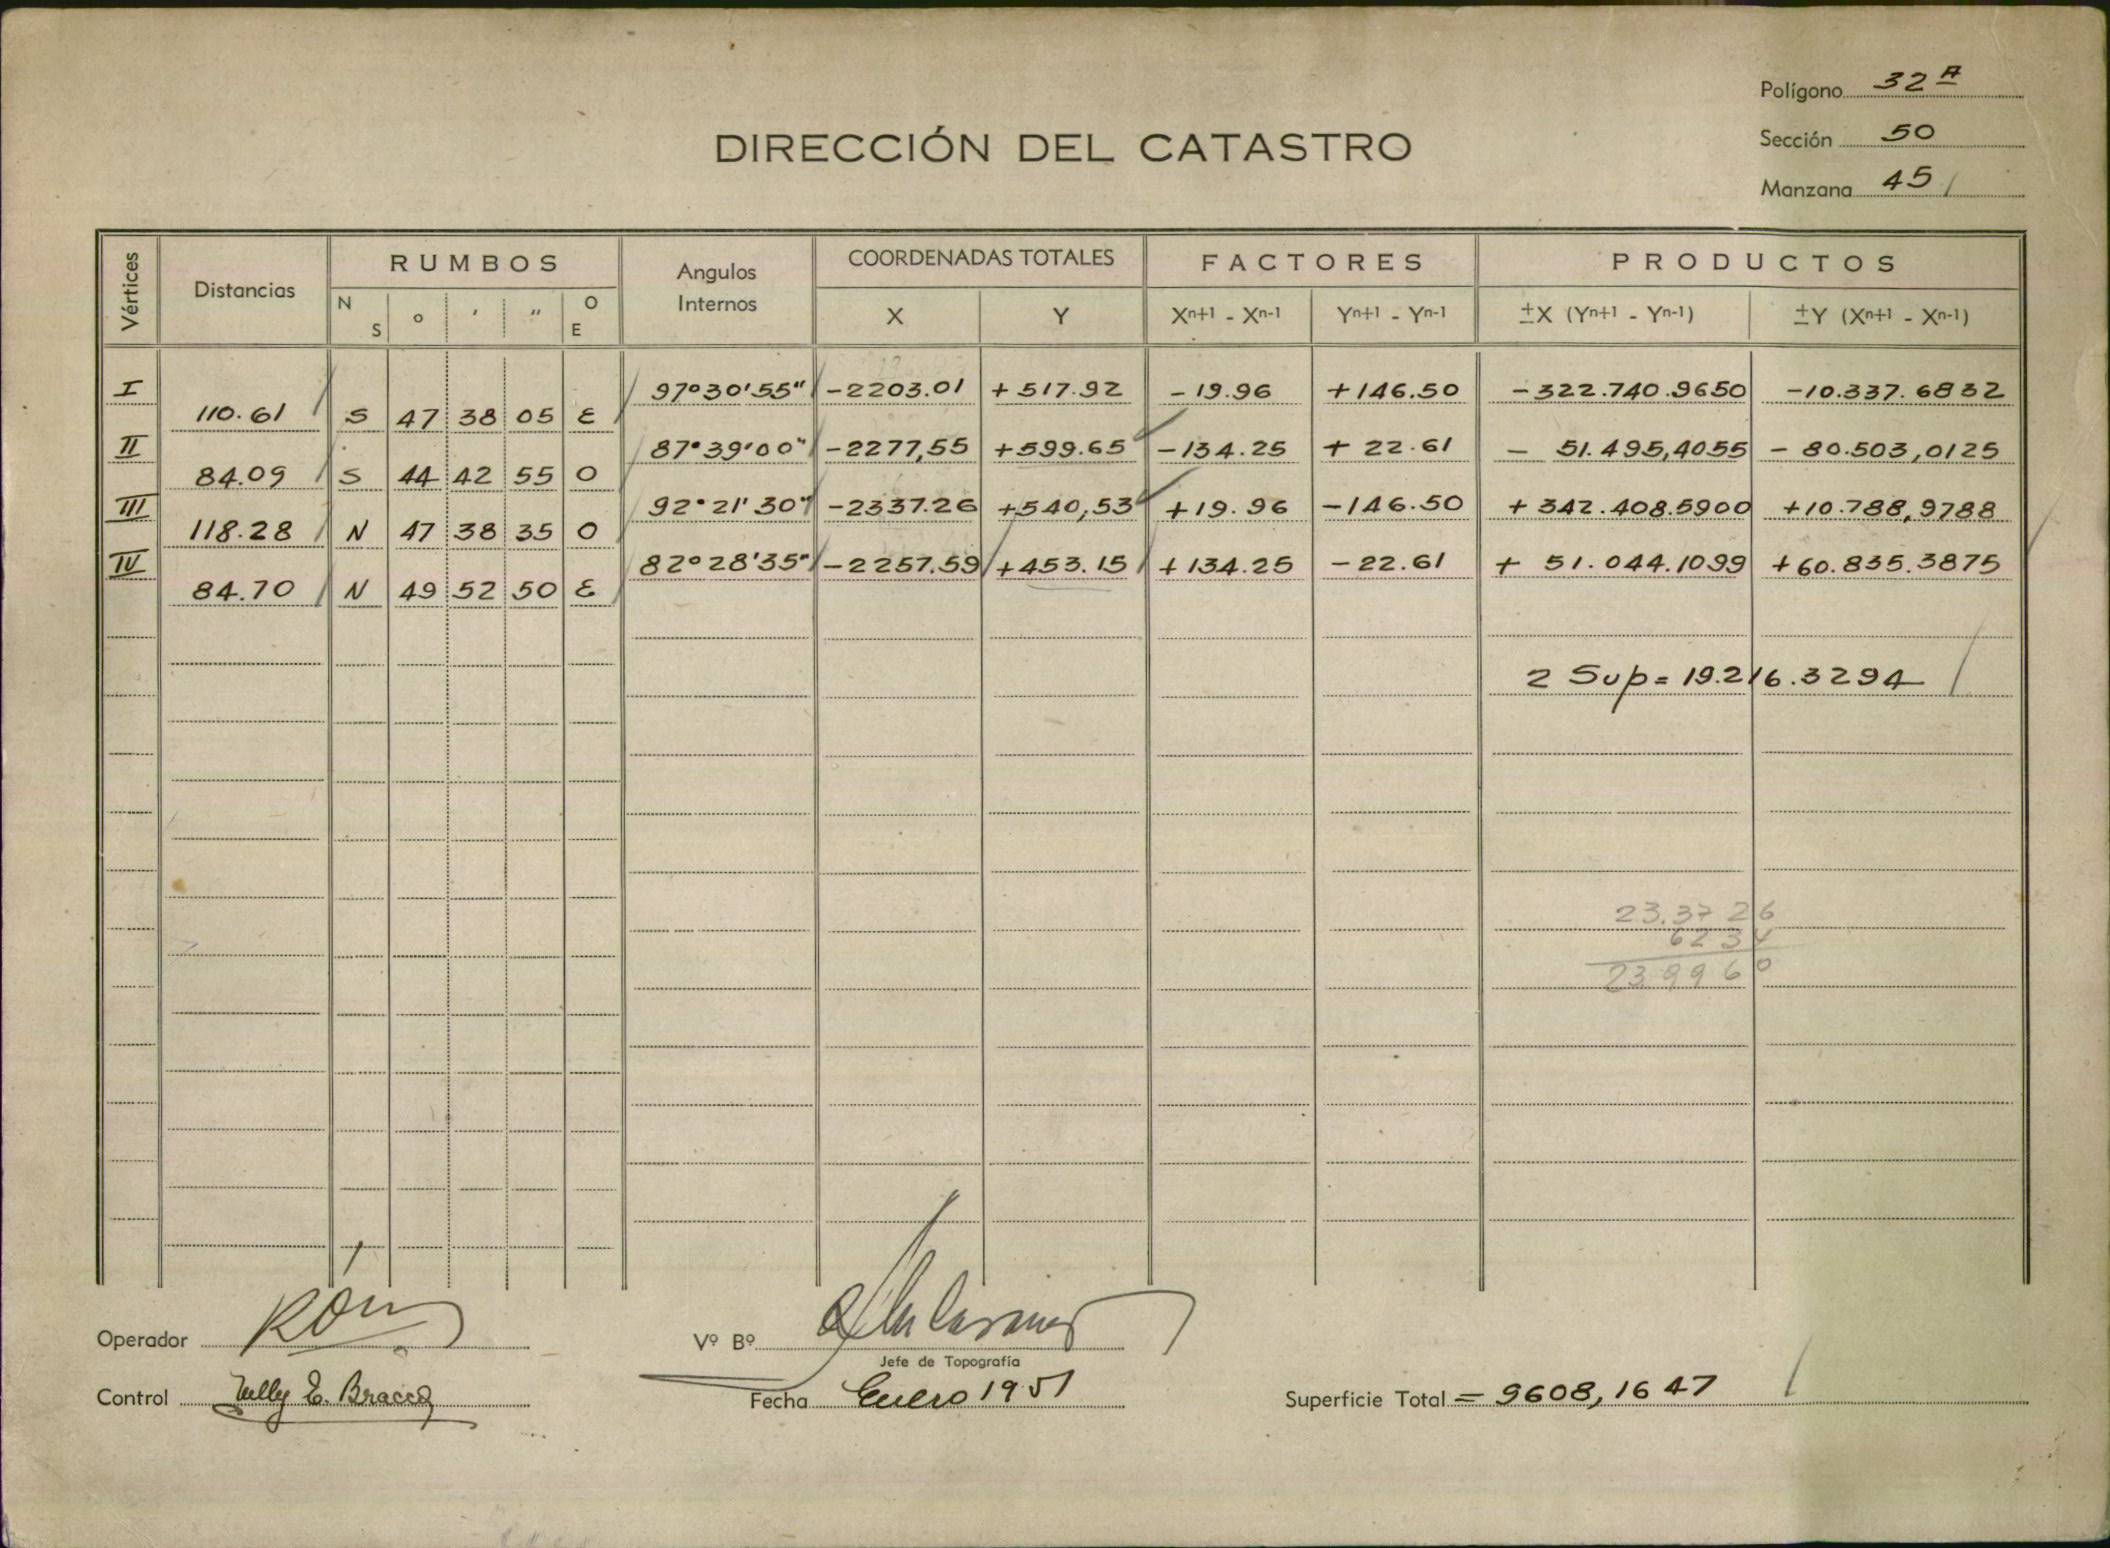 Polígono 32 A
Sección 50
Manzana 45
DIRECCIÓN DEL CATASTRO
Vértices Distancias RUMBOS Angulos Internos COORDENADAS TOTALES FACTORES PRODUCTOS
N S ° ' " O E X Y Xn+1 - Xn-1 Yn+1 - Yn-1 ±X (Yn+1 - Yn-1) ±Y (Xn+1 - Xn-1)
I 97°30'55" -2203.01 +517.92 -19.96 +146.50 -322.740.9650 -10.337.6832
110.61 S 47 38 05 E
II 87°39'00" -2277,55 +599.65 -134.25 +22.61 - 51.495,4055 - 80.503,0125
84.09 S 44 42 55 O
III 92°21'30" -2337.26 +540,53 +19.96 -146.50 +342.408.5900 +10.788,9788
118.28 N 47 38 35 O
IV 82°28'35" -2257.59 +453.15 +134.25 -22.61 + 51.044.1099 +60.835.3875
84.70 N 49 52 50 E
2 Sup = 19.216.3294
23.3726
6234
23.9960
Operador
Vº Bº
Jefe de Topografía
Control Nelly E. Bracco
Fecha Enero 1951
Superficie Total = 9608,1647